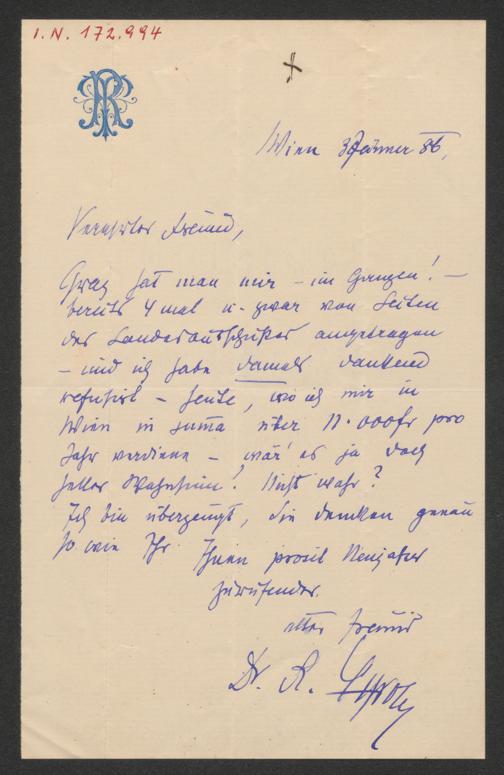 I.N. 172.994
Wien 3 Jänner 86,
Verehrter Freund,
Graz hat man mir – im Ganzen! –
bereits 4 mal u. zwar von Seiten
des Landesausschußes angetragen
– und ich habe damals dankend
refusirt – heute, wo ich mir in
Wien in suma über 11.000fr pro
Jahr verdiene – wär' es ja doch
heller Wahnsinn! Nicht wahr?
Ich bin überzeugt, Sie denken genau
so wie Ihr Ihnen prosit Neujahr
zurufender
alter Freund
Dr. R.